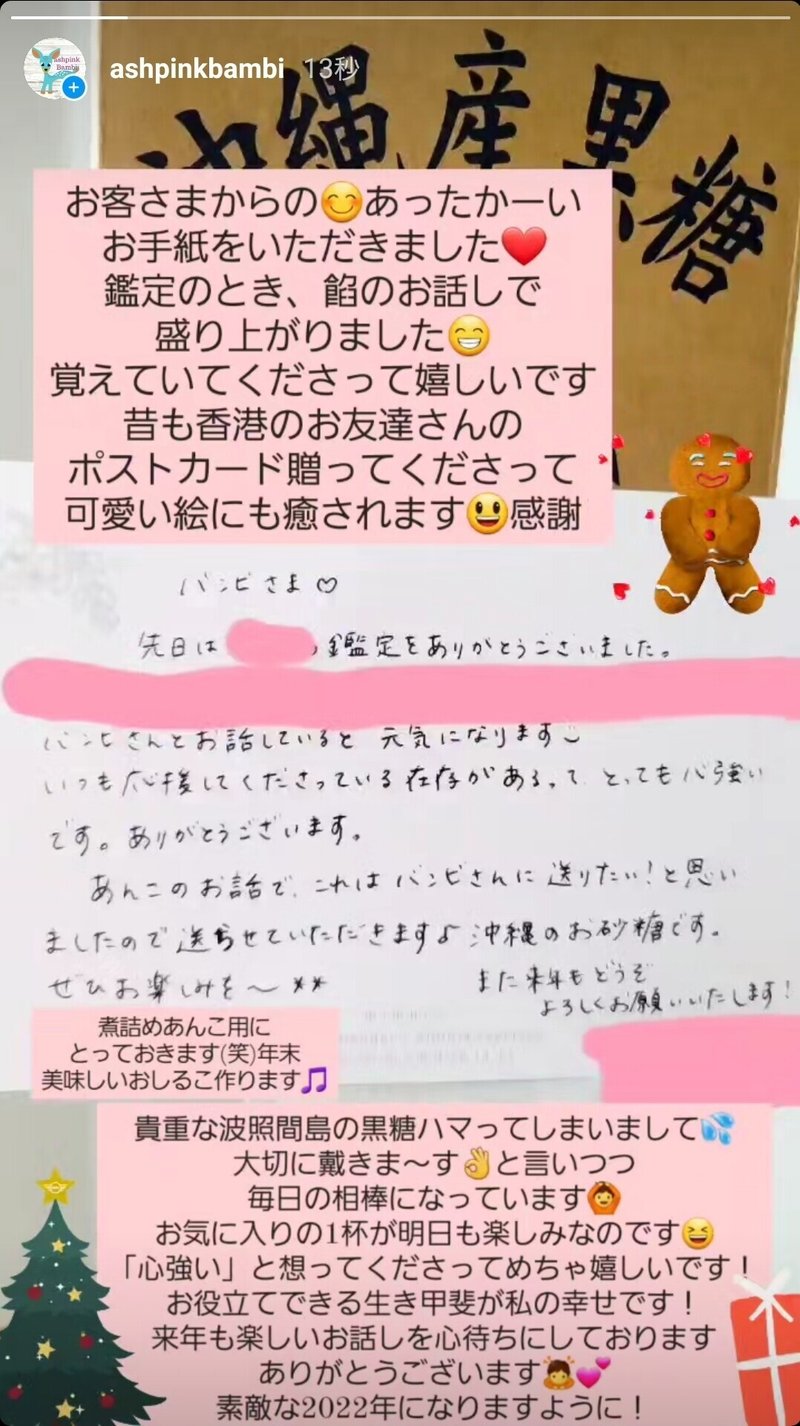 ashpinkbambi 13秒
ashpink
Bambi
沖縄産黒糖
お客さまからの😊あったかーい
お手紙をいただきました❤️
鑑定のとき、餡のお話しで
盛り上がりました😁
覚えていてくださって嬉しいです
昔も香港のお友達さんの
ポストカード贈ってくださって
可愛い絵にも癒されます😃感謝
バンビさま♡
先日は
、鑑定をありがとうございました。
バンビさんとお話していると 元気になります
いつも応援してくださっている存在があるって、とっても心強い
です。ありがとうございます。
あんこのお話で、これはバンビさんに送りたい!と思い
ましたので送らせていただきます♪沖縄のお砂糖です。
ぜひお楽しみを〜**
また来年もどうぞ
よろしくお願いいたします!
煮詰めあんこ用に
とっておきます(笑)年末
美味しいおしるこ作ります🎵
貴重な波照間島の黒糖ハマってしまいまして💦
大切に戴きま〜す👌と言いつつ
毎日の相棒になっています🙆
お気に入りの1杯が明日も楽しみなのです😆
「心強い」と想ってくださってめちゃ嬉しいです！
お役立てできる生き甲斐が私の幸せです！
来年も楽しいお話しを心待ちにしております
ありがとうございます🙇💕
素敵な2022年になりますように！